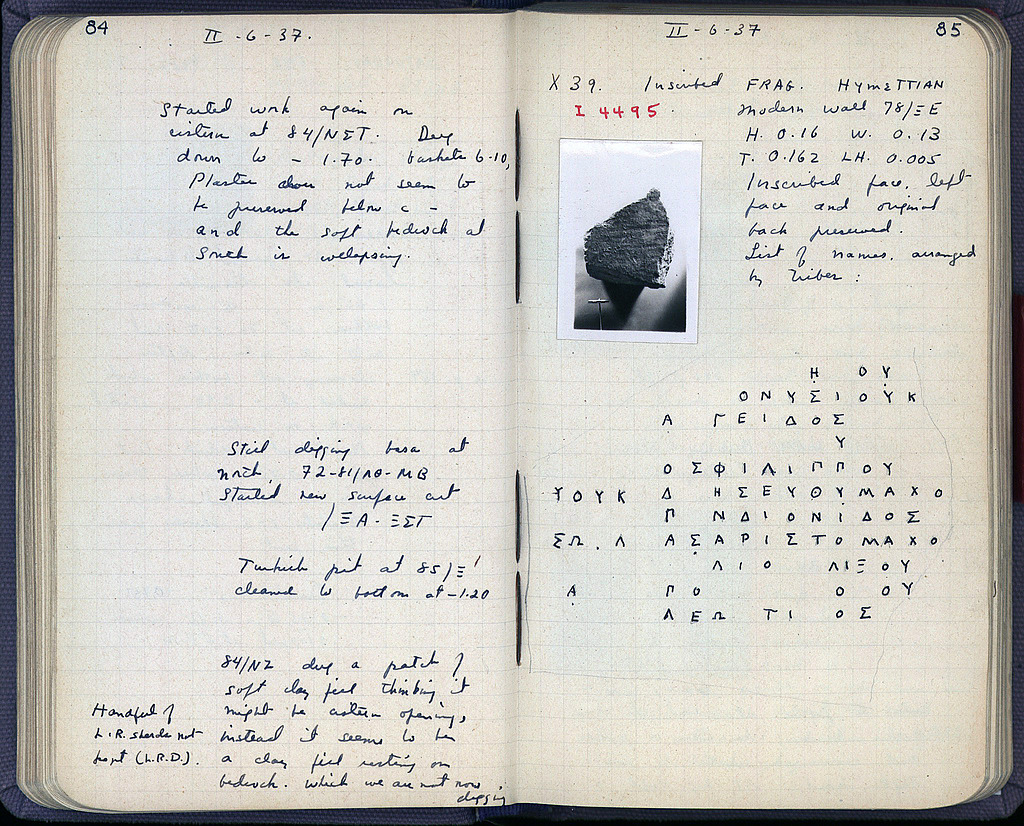 84
II - 6 - 37.
Started work again on
cistern at 84/ΝΣΤ. Dug
down to - 1.70. baskets 6-10,
Plaster does not seem to
be preserved below c -
and the soft bedrock at
South is collapsing.
Still digging basa at
north, 72-81/ΛΘ-ΜΒ
Started new surface cut
/ΞΑ - ΞΣΤ
Turkish pit at 85/Ξ'
cleaned to bottom at -1.20
84/ΝΖ dug a patch of
soft clay fill thinking it
might be cistern opening,
instead it seems to be
a clay fill resting on
bedrock. which we are not now
digging
Handful of
L.R. sherds not
kept (L.R.D.).
II - 6 - 37
85
X 39. Inscribed FRAG. HYMETTIAN
I 4495.
Modern wall 78/ΞΕ
H. 0.16 W. 0.13
T. 0.162 LH. 0.005
Inscribed face, left
face and original
back preserved.
List of names, arranged
by tribes :
Η ΟΥ
ΟΝΥΣΙΟΥΚ
Α ΓΕΙΔΟΣ
Υ
ΟΣΦΙΛΙΠΠΟΥ
ΥΟΥΚ Δ ΗΣΕΥΘΥΜΑΧΟ
Π ΝΔΙΟΝΙΔΟΣ
ΣΩ. Λ ΑΣΑΡΙΣΤΟΜΑΧΟ
ΛΙΟ ΛΙΞΟΥ
Α ΠΟ Ο ΟΥ
ΛΕΩ ΤΙ ΟΣ